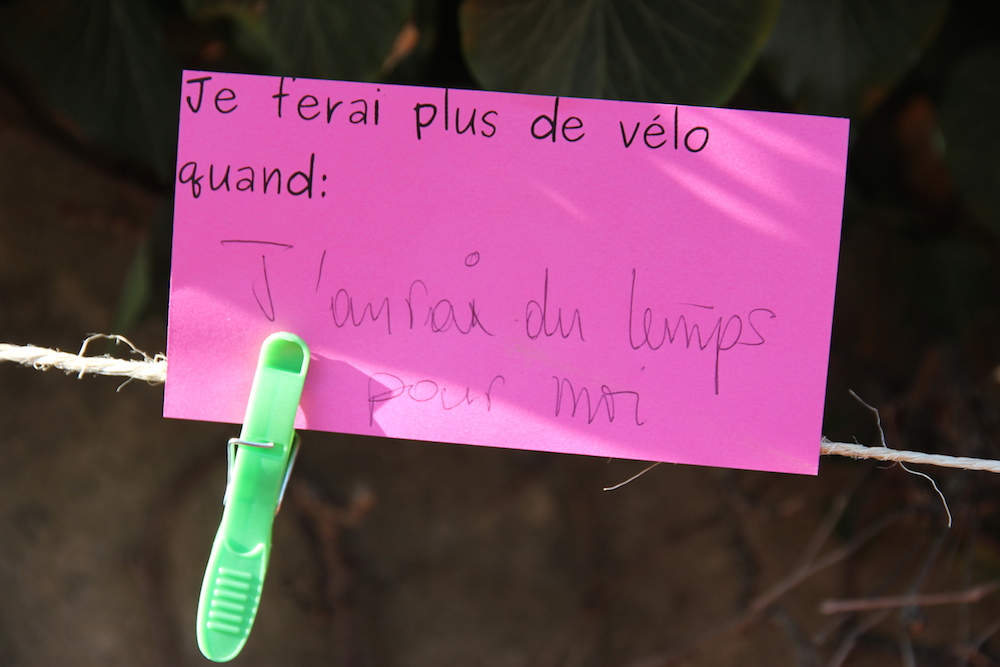 Je ferai plus de vélo
quand:
J'aurai du temps
pour moi